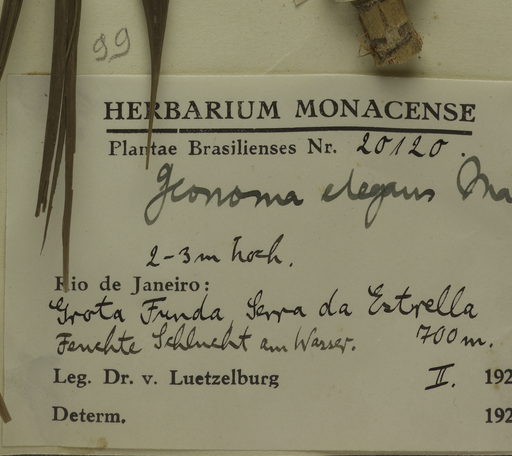 99
HERBARIUM MONACENSE
Plantae Brasilienses Nr. 20120.
Geonoma elegans Ma
2-3m hoch.
Rio de Janeiro:
Grota Funda, Serra da Estrella
Feuchte Schlucht am Wasser. 700m.
Leg. Dr. v. Luetzelburg II. 192
Determ. 192